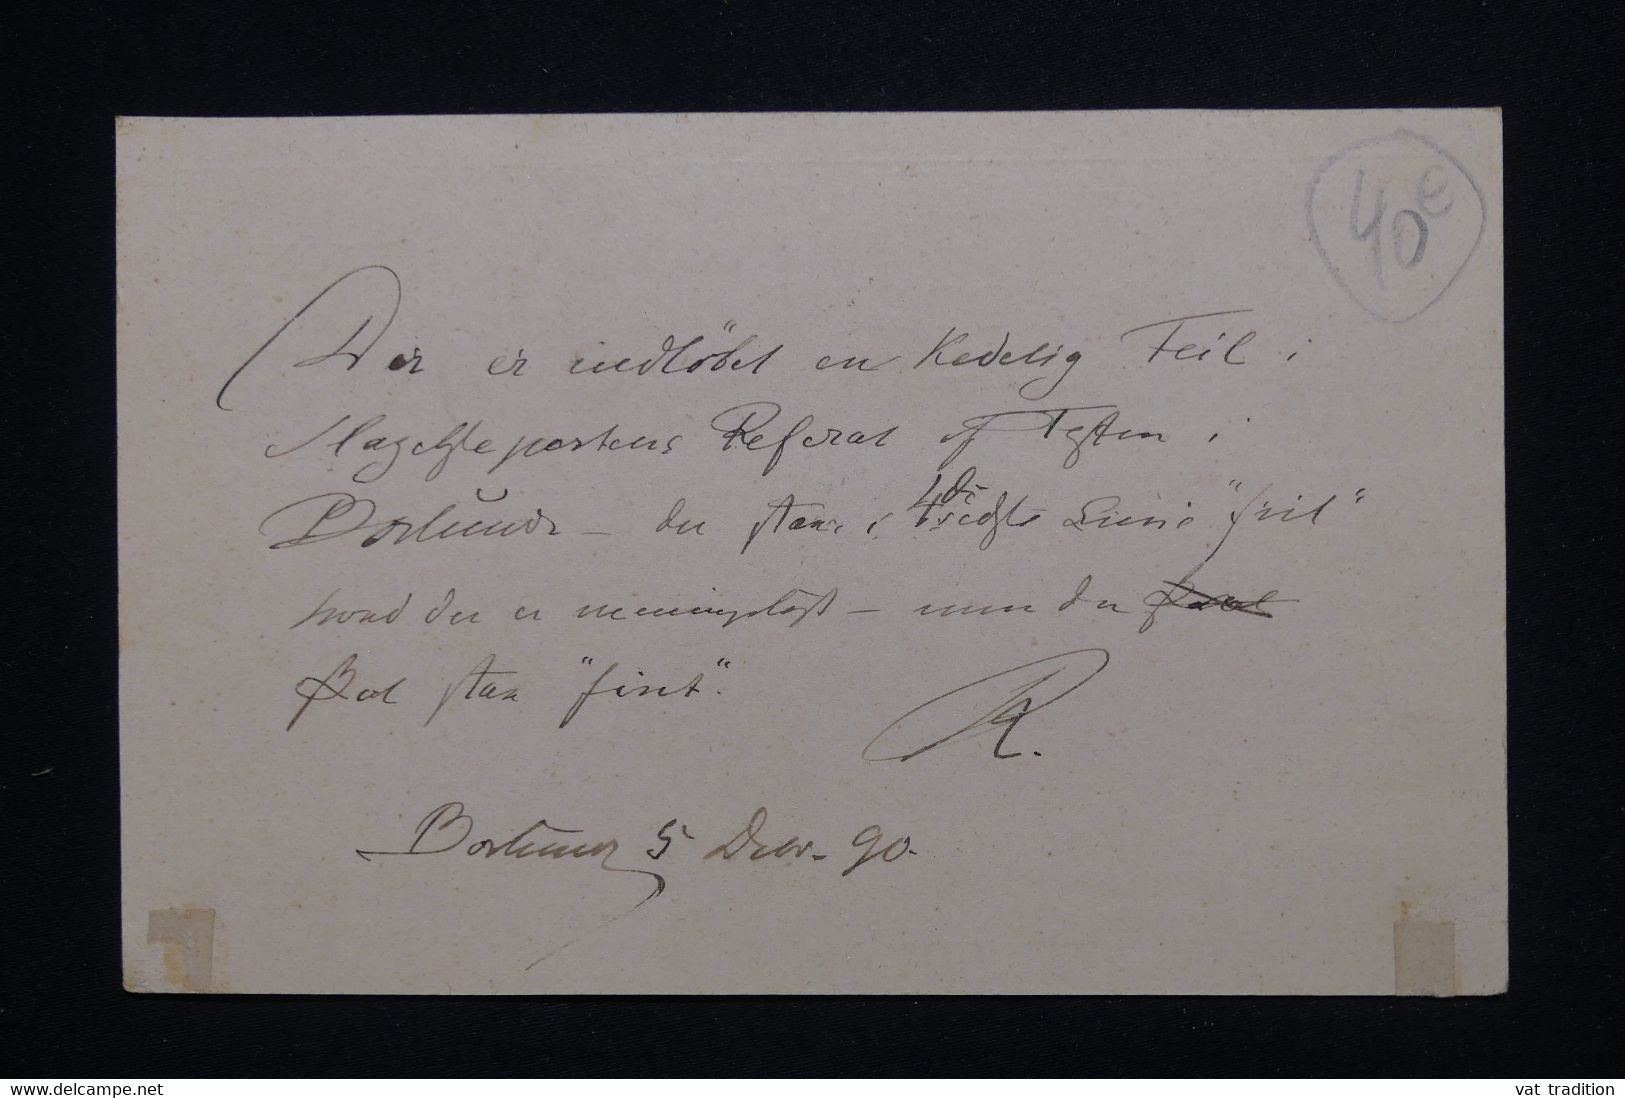 40 e
Der er indlöbet en Kedelig Feil i
Referat af Festen i
– der staar i 4de sidste Linie "frit"
hvad der er meningslöst – men der
skal staa "fint".
R.
5 Decbr. 90.
www.delcampe.net
vat_tradition